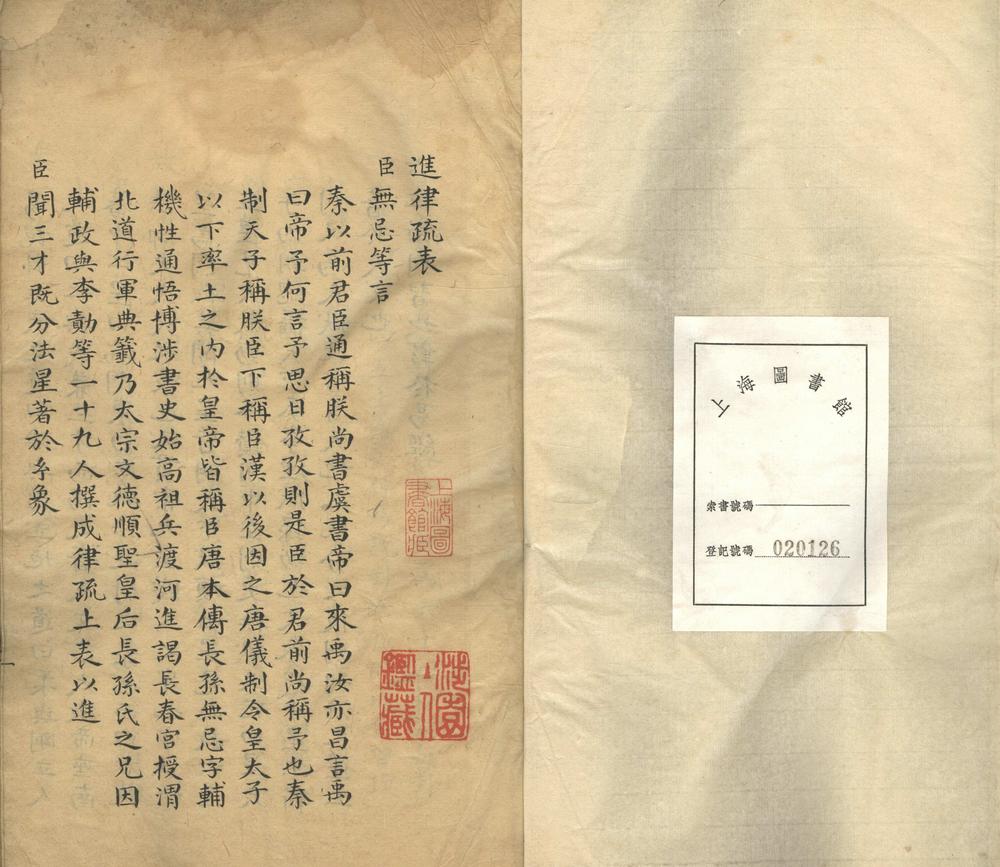 上海圖書館
索書號碼
登記號碼 020126
進律疏表
臣無忌等言
秦以前君臣通稱朕尚書虞書帝曰來禹汝亦昌言禹
曰帝予何言予思日孜孜則是臣於君前尚稱予也秦
制天子稱朕臣下稱臣漢以後因之唐儀制令皇太子
以下率土之內於皇帝皆稱臣唐本傳長孫無忌字輔
機性通悟博涉書史始高祖兵渡河進謁長春宮授渭
北道行軍典籤乃太宗文德順聖皇后長孫氏之兄因
輔政與李勣等一十九人撰成律疏上表以進
臣聞三才既分法星著於玄象
上海圖書館藏